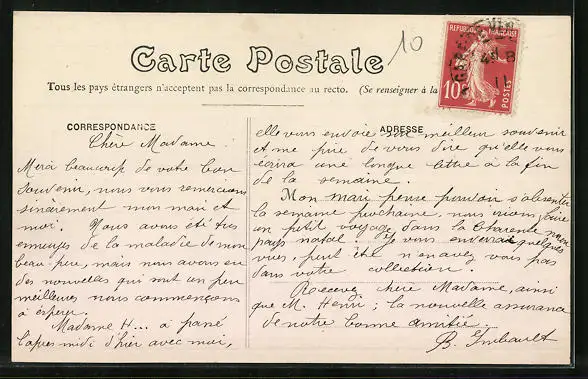 10
REPUBLIQUE FRANÇAISE
10
POSTES
Carte Postale
Tous les pays étrangers n'acceptent pas la correspondance au recto. (Se renseigner à la
CORRESPONDANCE
Chère Madame.
Merci beaucoup de votre bon
souvenir, nous vous remercions
sincèrement mon mari et
moi. Nous avons été très
ennuyés de la maladie de mon
beau-père, mais nous avons eu
des nouvelles qui sont un peu
meilleures nous commençons
à espérer.
Madame H... a passé
l'après midi d'hier avec moi,
ADRESSE
elle vous envoie son meilleur souvenir
et me prie de vous dire qu'elle vous
écrira une longue lettre à la fin
de la semaine.
Mon mari pense pouvoir s'absenter
la semaine prochaine, nous irions faire
un petit voyage dans la Charente mon
pays natal. Je vous enverrai quelques
vues, peut être n'en avez vous pas
dans votre collection.
Recevez chère Madame, ainsi
que M. Henri ; la nouvelle assurance
de notre bonne amitié.
B. Imbault